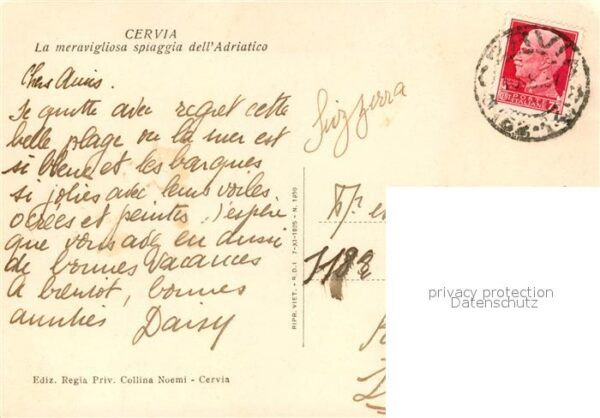 CERVIA
La meravigliosa spiaggia dell'Adriatico
Chers Amis.
Je quitte avec regret cette
belle plage ou la mer est
si bleue et les barques
si jolies avec leurs voiles
ocrées et peintes. J'espère
que vous avez eu aussi
de bonnes vacances
A bientôt, bonnes
amitiés Daisy
Ediz. Regia Priv. Collina Noemi - Cervia
RIPR. VIET. - R.D.I. 7-XI-1925 - N. 1950
Svizzera
POSTE
ITALIANE
privacy protection
Datenschutz